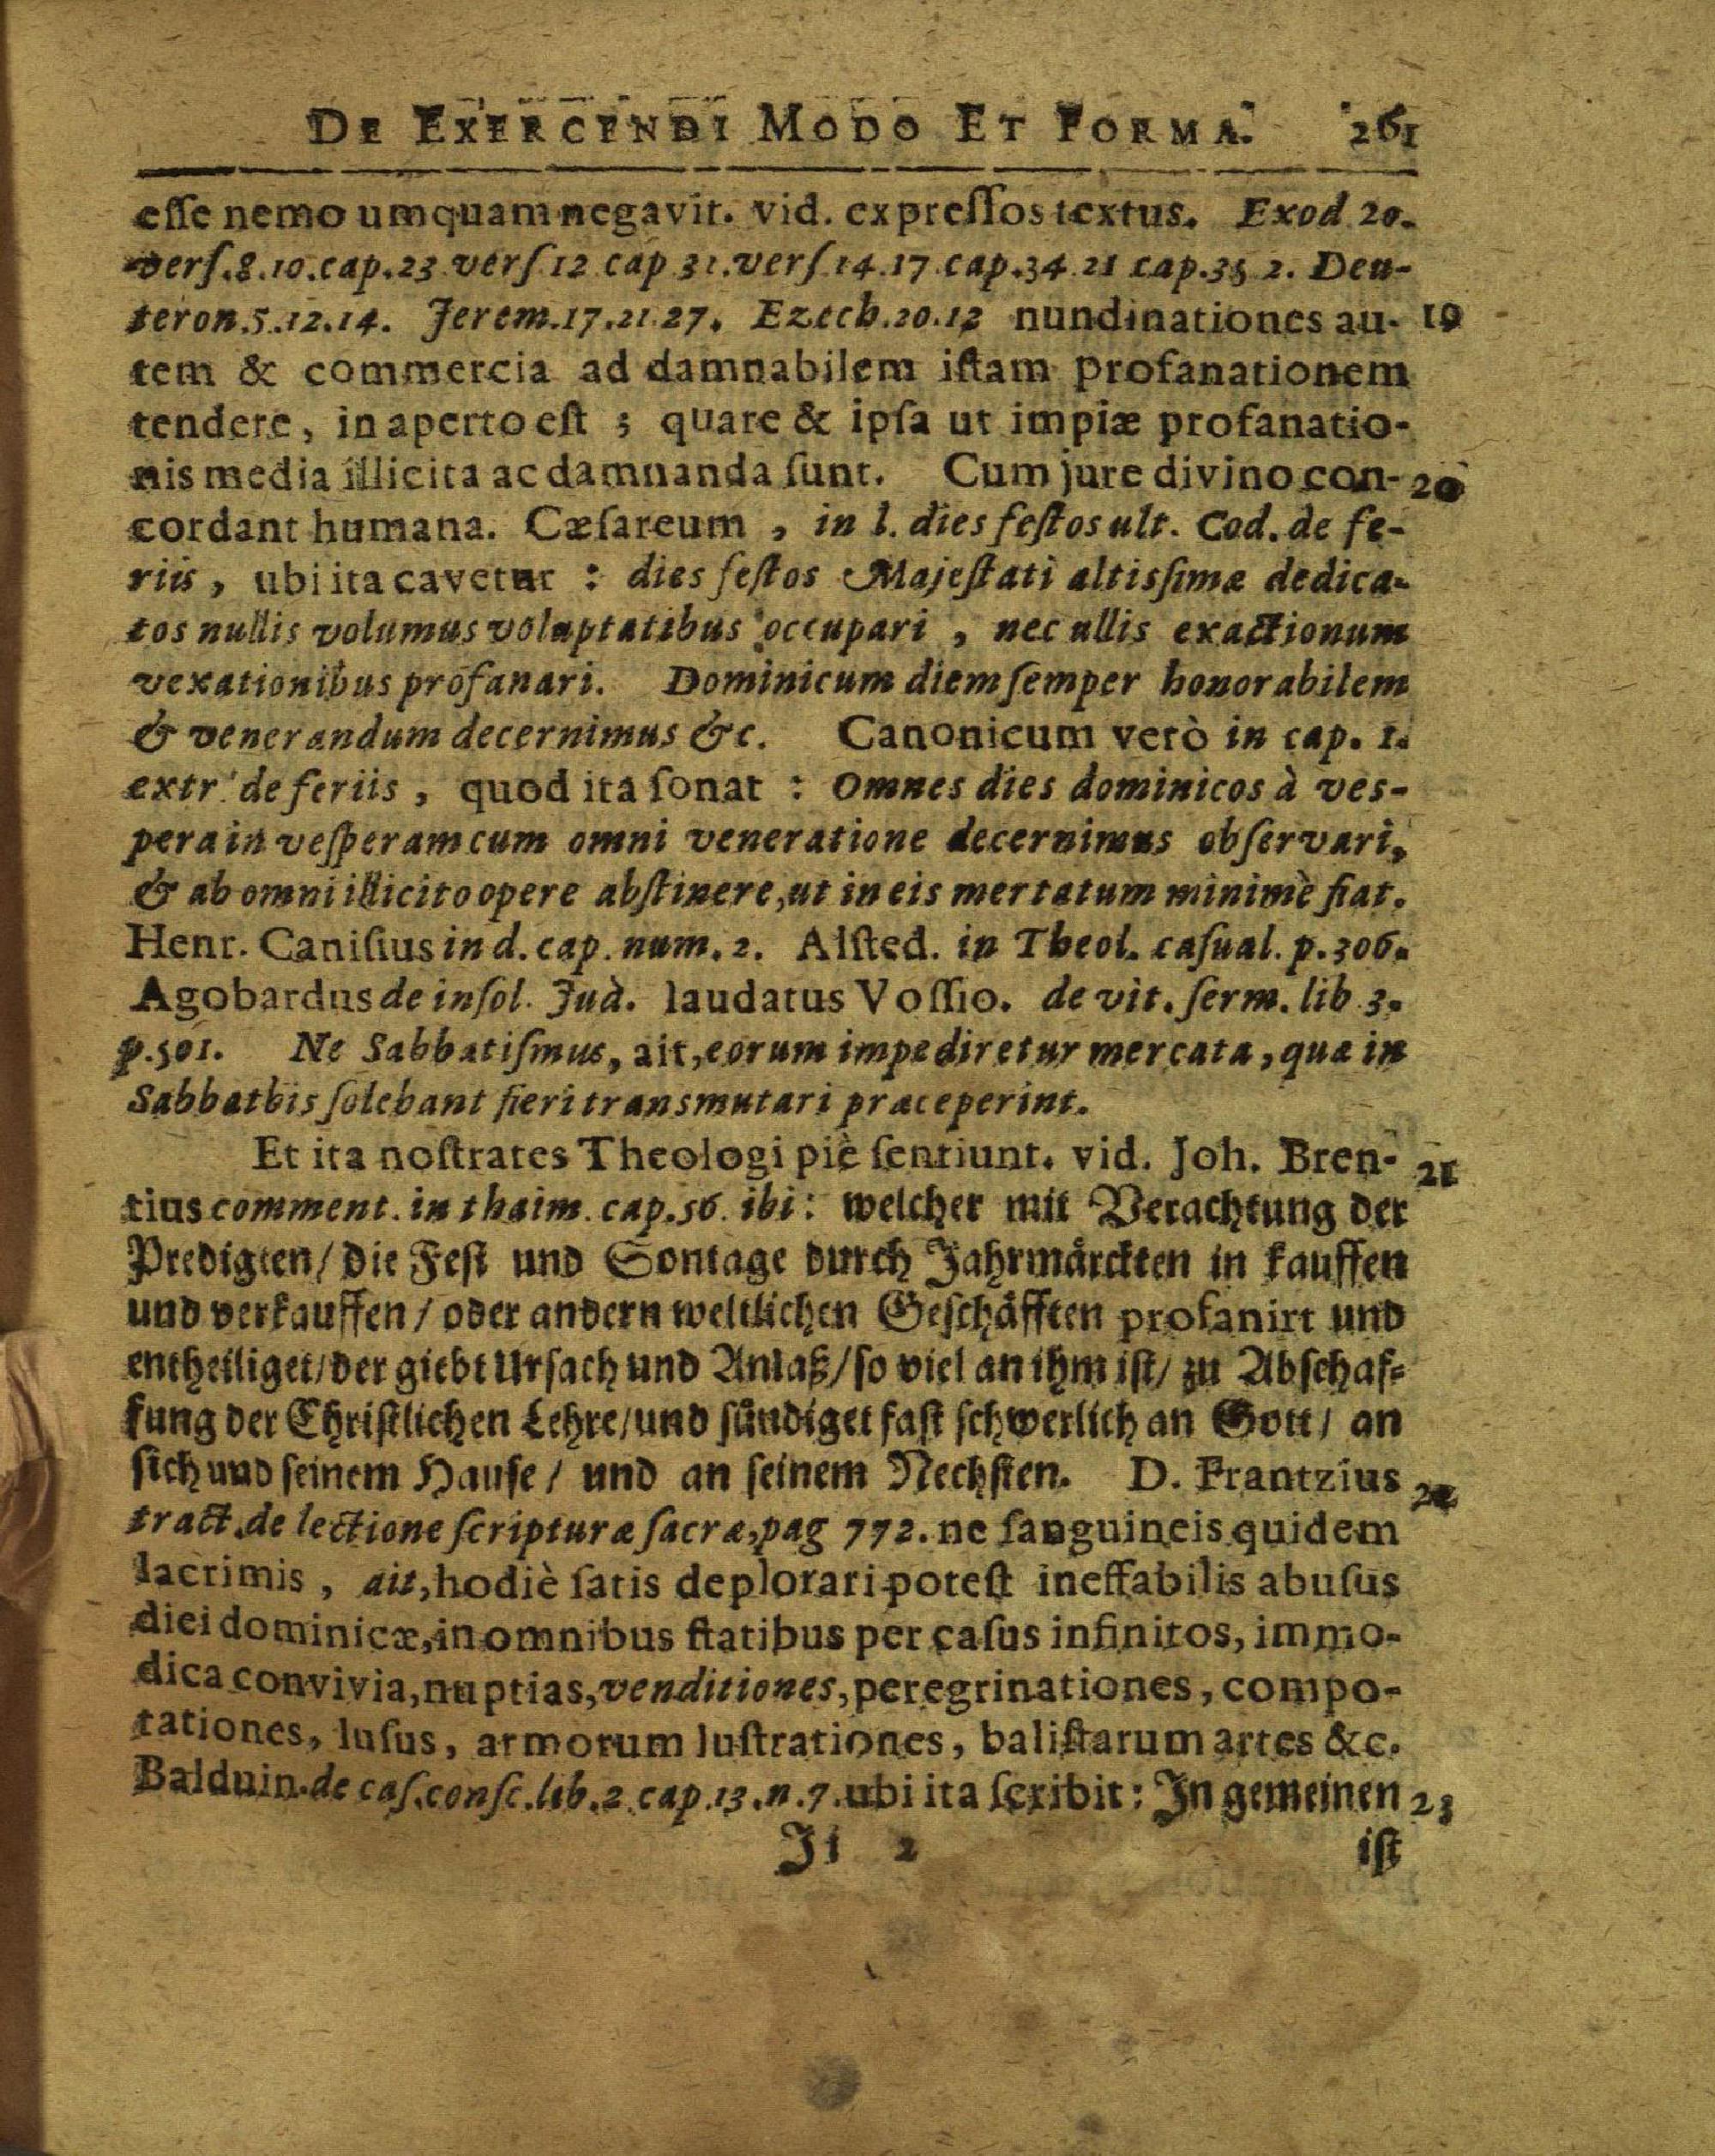 DE EXERCENDI MODO ET FORMA. 261
eſſe nemo umquam negavit. vid. expreſſos textus. Exod 20.
verſ.8.10.cap.23 verſ 12 cap 31.verſ 14.17 cap.34 21 cap.35 2. Deu-
teron.5.12.14. Jerem.17.21 27. Ezech.20.12 nundinationes au- 19
tem & commercia ad damnabilem iſtam profanationem
tendere, in aperto eſt ; quare & ipſa ut impiæ profanatio-
nis media illicita ac damnanda ſunt. Cum jure divino con- 20
cordant humana. Cæſareum , in l. dies feſtos ult. Cod. de fe-
riis, ubi ita cavetur : dies feſtos Majeſtati altisſimæ dedica-
tos nullis volumus voluptatibus occupari , nec ullis exactionum
vexationibus profanari. Dominicum diem ſemper honorabilem
& venerandum decernimus &c. Canonicum verò in cap. 1.
extr. de feriis , quod ita ſonat : Omnes dies dominicos à ves-
pera in veſperam cum omni veneratione decernimus obſervari,
& ab omni illicito opere abſtinere, ut in eis mertatum minimè fiat.
Henr. Caniſius in d. cap. num. 2. Alſted. in Theol. caſual. p. 306.
Agobardus de inſol. Jud. laudatus Voſſio. de vit. ſerm. lib 3.
p.501. Ne Sabbatiſmus, ait, eorum impediretur mercata, quæ in
Sabbathis ſolebant fieri transmutari præceperint.
Et ita noſtrates Theologi piè ſentiunt. vid. Joh. Bren- 21
tius comment. in thaim. cap. 56. ibi: welcher mit Verachtung der
Predigten/ die Feſt und Sontage durch Jahrmårckten in kauffen
und verkauffen/ oder andern weltlichen Geſchåfften profanirt und
entheiliget/ der giebt Urſach und Anlaß/ ſo viel an ihm iſt/ zu Abſchaf-
fung der Chriſtlichen Lehre/ und ſůndiget faſt ſchwerlich an Gott/ an
ſich und ſeinem Hauſe/ und an ſeinem Nechſten. D. Frantzius 22
tract. de lectione ſcripturæ ſacræ, pag 772. ne ſanguineis quidem
lacrimis , ait, hodiè ſatis deplorari poteſt ineffabilis abuſus
diei dominicæ, in omnibus ſtatibus per caſus infinitos, immo-
dica convivia, nuptias, venditiones, peregrinationes, compo-
tationes, luſus, armorum luſtrationes, baliſtarum artes &c.
Balduin. de caſ. conſc. lib. 2 cap. 13. n. 7. ubi ita ſcribit: In gemeinen 23
Ii 2 iſt